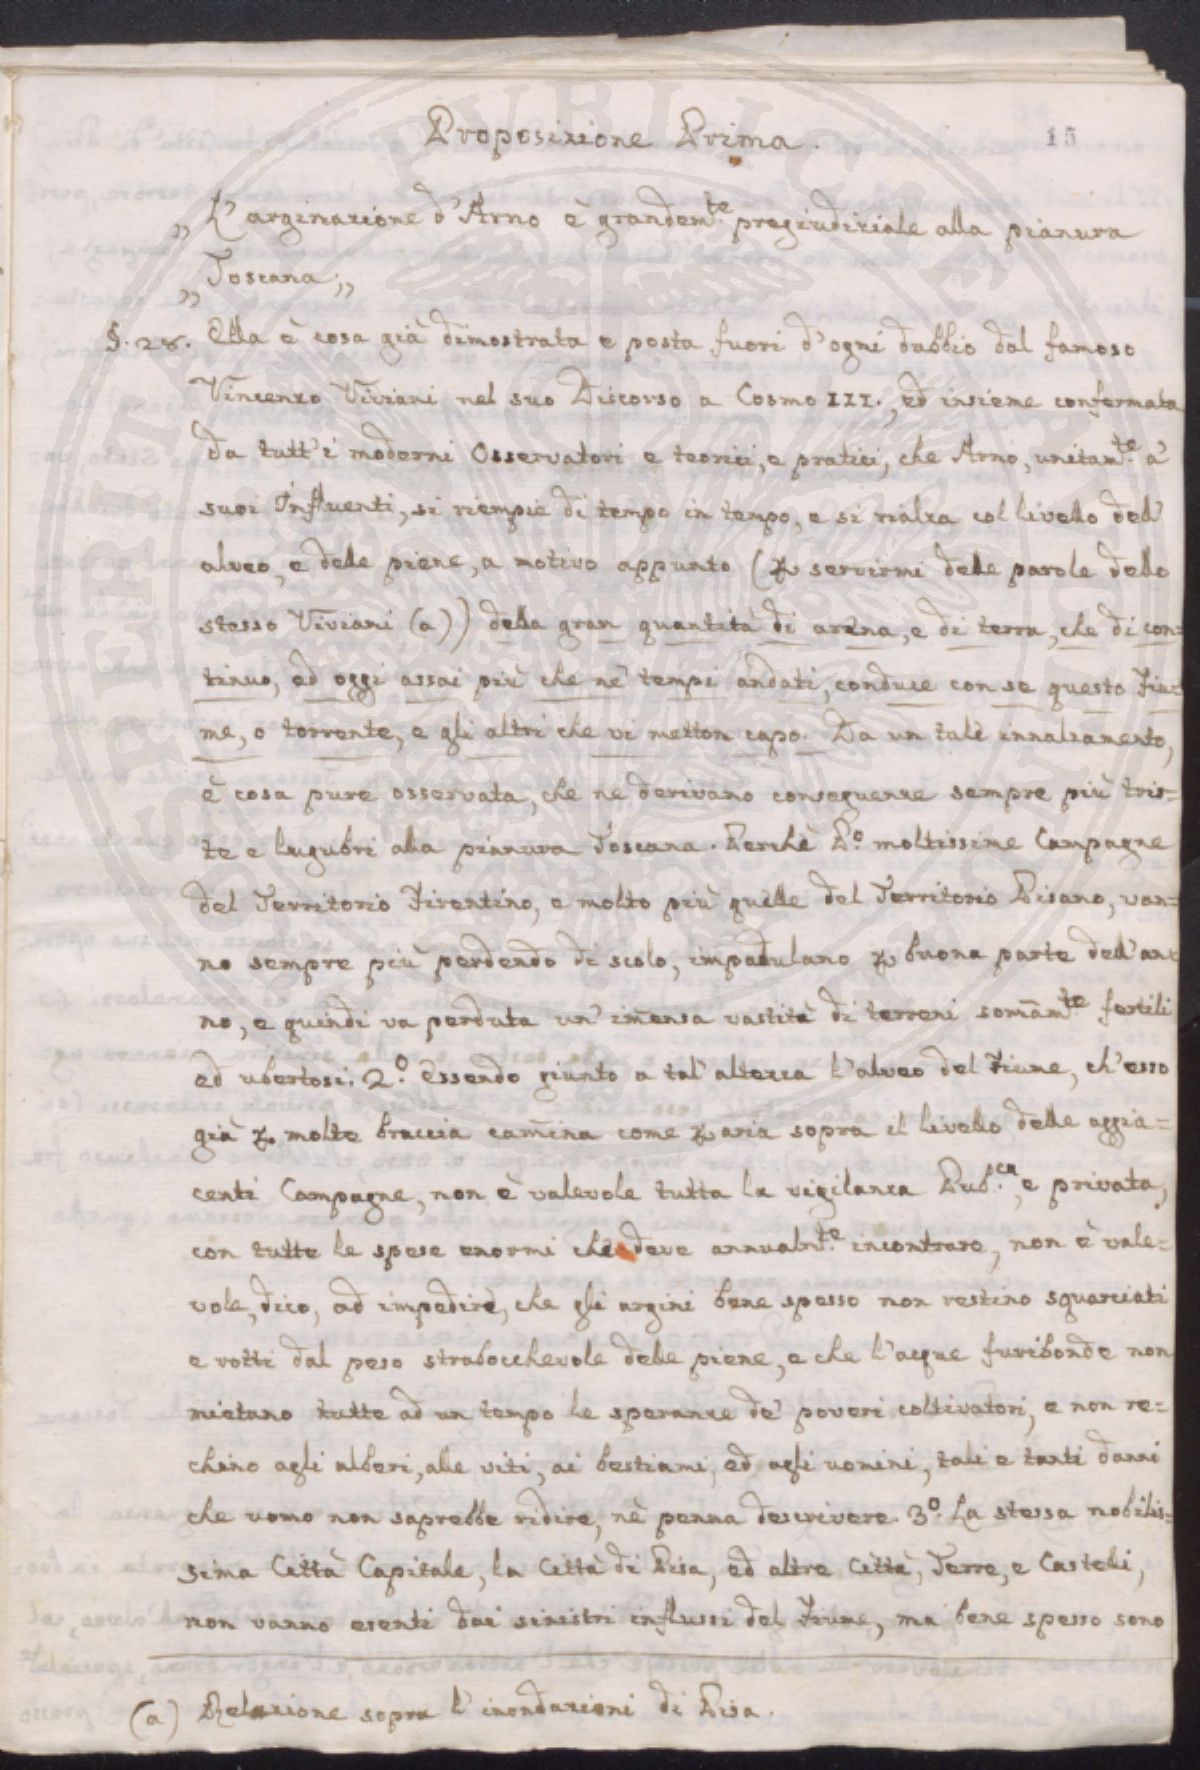 Proposizione Prima.
15
„ L'arginazione d'Arno è grandem.te pregiudiziale alla pianura
„ Toscana;„
§. 28. Ella è cosa già dimostrata e posta fuori d'ogni dubbio dal famoso
Vincenzo Viviani nel suo Discorso a Cosmo III., ed insieme confermata
da tutt'i moderni Osservatori e teorici, e pratici, che Arno, unitam.te a'
suoi Influenti, si riempie di tempo in tempo, e si rialza col livello dell'
alveo, e delle piene, a motivo appunto (p servirmi delle parole dello
stesso Viviani (a)) della gran quantità di arena, e di terra, che di con=
tinuo, ed oggi assai più che ne' tempi andati, conduce con se questo Fiu=
me, o torrente, e gli altri che vi metton capo. Da un tale innalzamento,
è cosa pure osservata, che ne derivano conseguenze sempre più tris=
te e lugubri alla pianura Toscana. Perchè P.o moltissime Campagne
del Territorio Fiorentino, e molto più quelle del Territorio Pisano, van=
no sempre più perdendo di scolo, impadulano p buona parte dell'an=
no, e quindi va perduta un' imensa vastità di terreni somam.te fertili
ed ubertosi. 2.o essendo giunto a tal' altezza l'alveo del Fiume, ch'esso
già p. molte braccia camina come p aria sopra il livello delle aggia=
centi Campagne, non è valevole tutta la vigilanza Pub.ca, e privata,
con tutte le spese enormi che deve annualm.te incontrare, non è vale=
vole, dico, ad impedire, che gli argini bene spesso non restino squarciati
e rotti dal peso strabocchevole delle piene, e che l'acque furibonde non
mietano tutte ad un tempo le speranze de' poveri coltivatori, e non re=
chino agli alberi, alle viti, ai bestiami, ed agli uomini, tali e tanti danni
che uomo non saprebbe ridire, nè penna descrivere. 3.o La stessa nobilis=
sima Città Capitale, la Città di Pisa, ed altre Città, Terre, e Castelli,
non vanno esenti dai sinistri influssi del Fiume, ma bene spesso sono
(a) Relazione sopra l'inondazioni di Pisa.